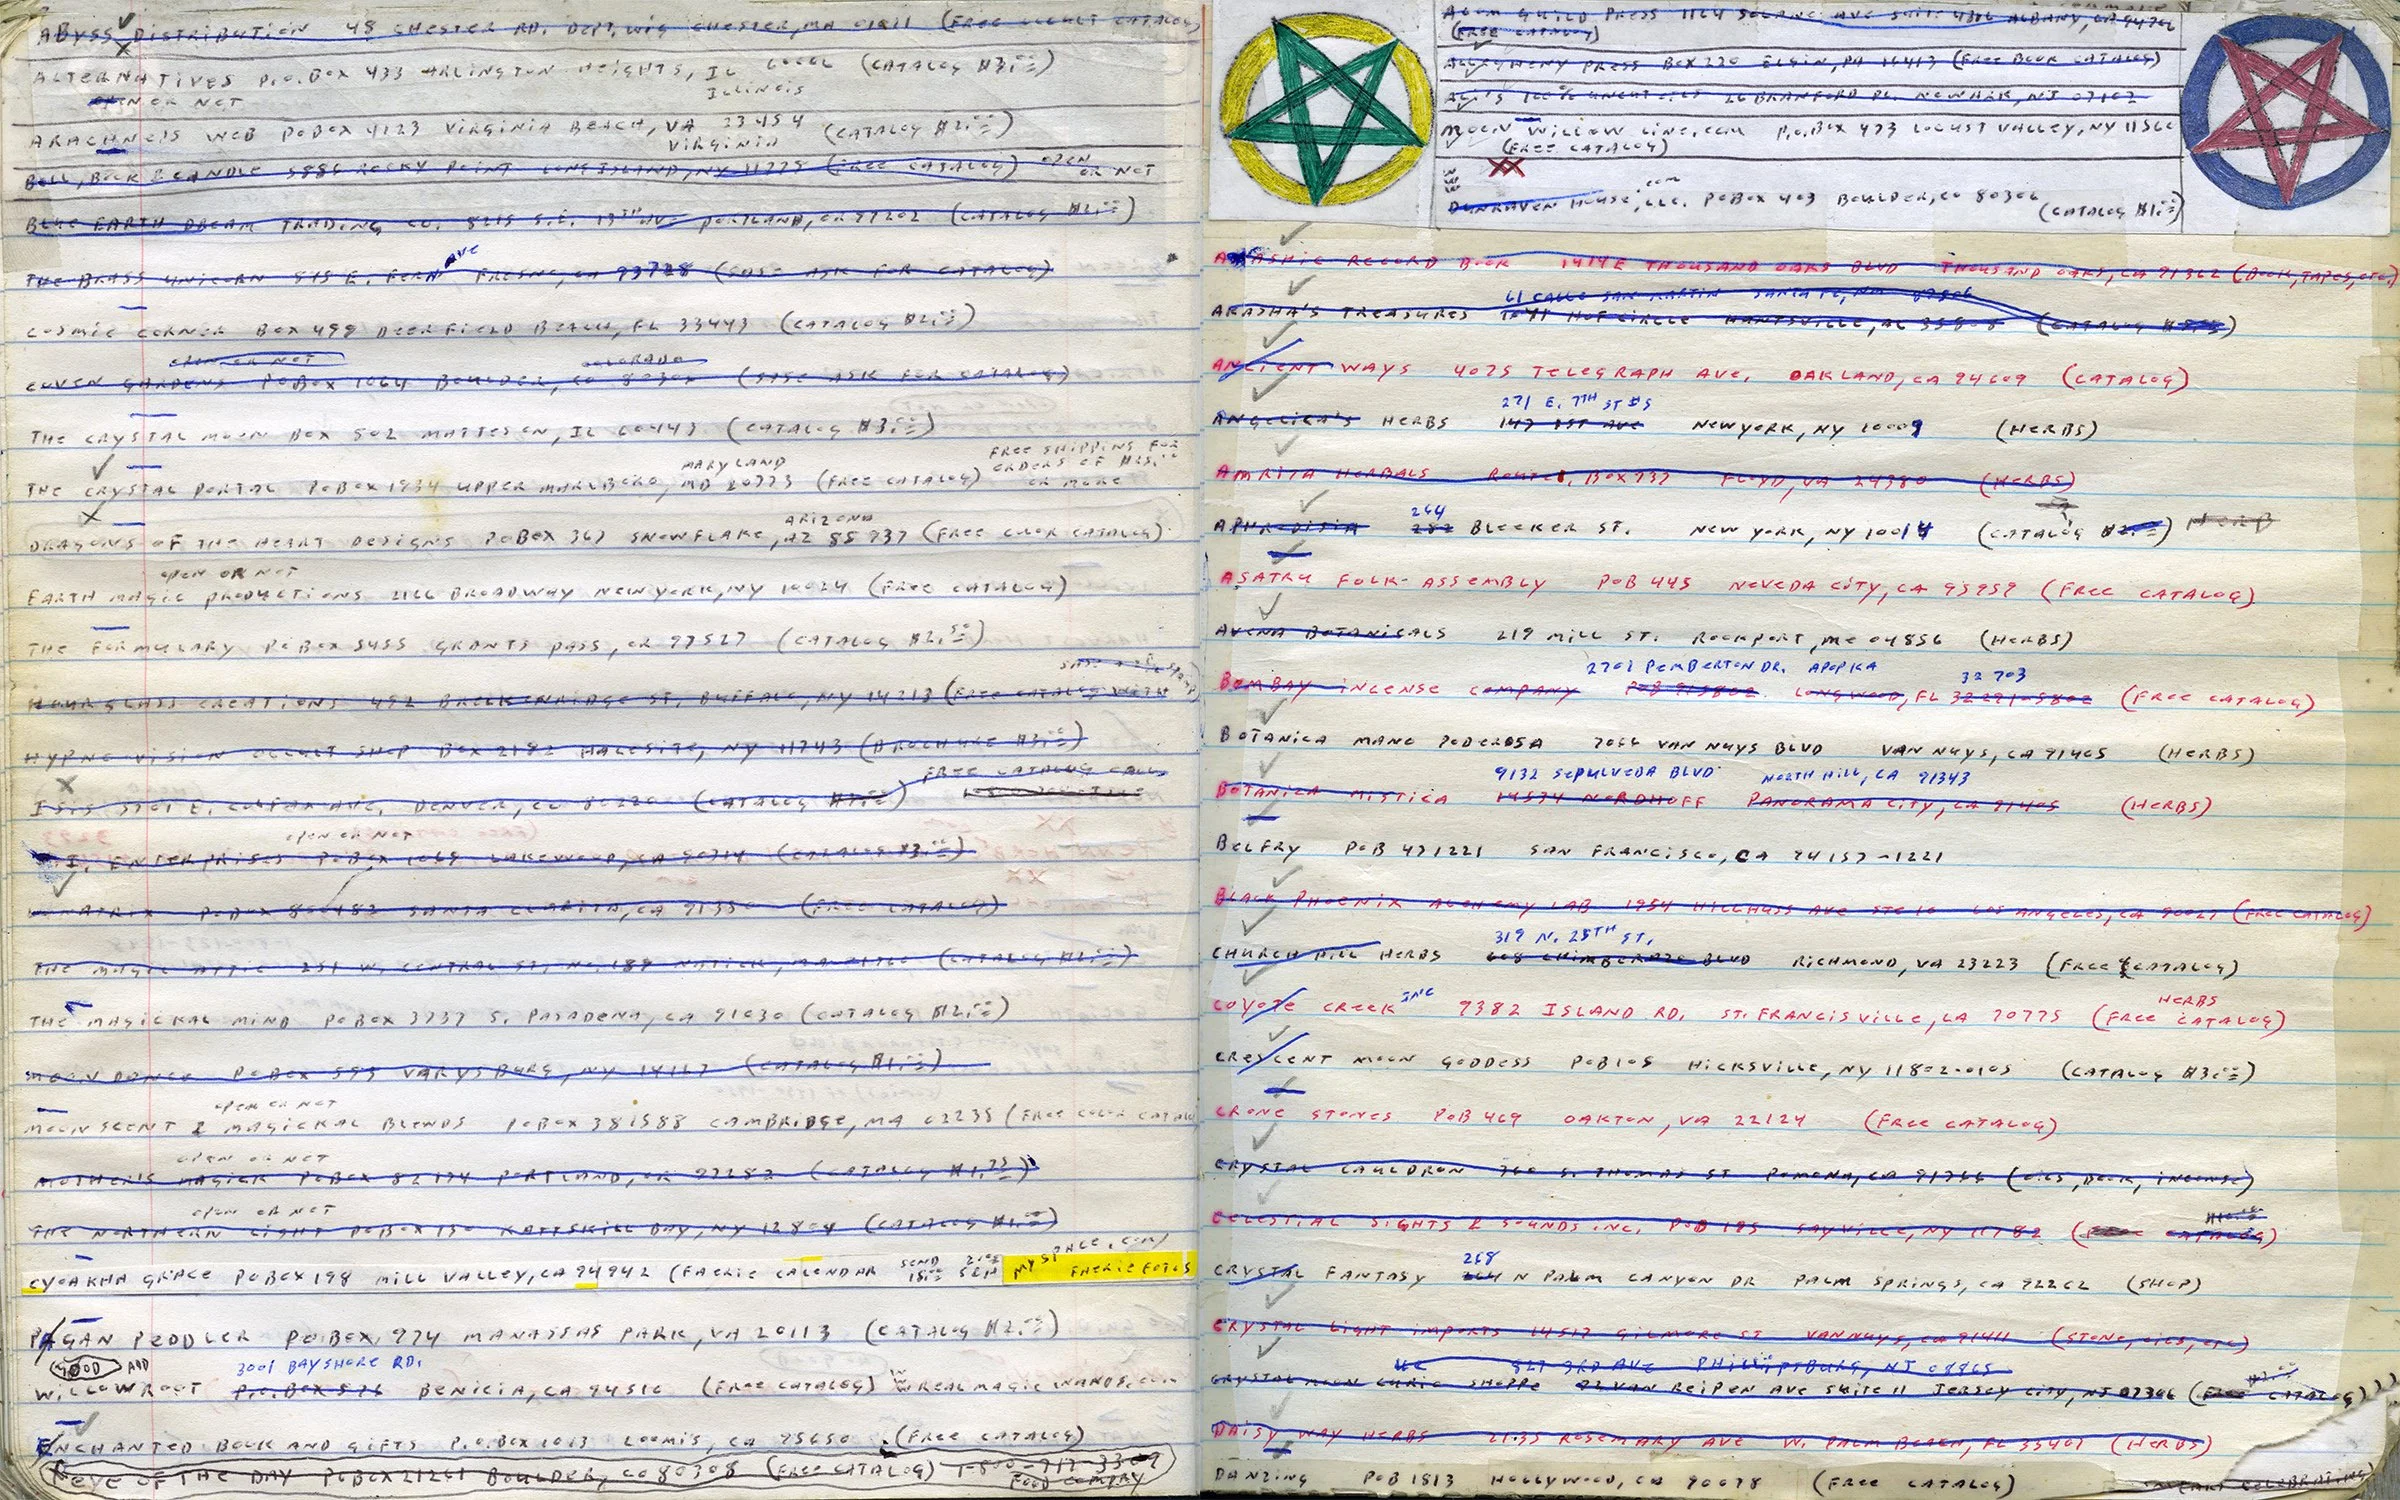 ABYSS DISTRIBUTION 48 CHESTER RD. DEPT. WIG CHESTER, MA 01011 (FREE OCCULT CATALOG)
ALTERNATIVES P.O. BOX 433 ARLINGTON HEIGHTS, IL LOCAL (CATALOG $3.00)
OPEN OR NOT ILLINOIS
ARACHNE'S WEB PO BOX 4123 VIRGINIA BEACH, VA 23454 (CATALOG $2.00)
VIRGINIA
BELL, BOOK & CANDLE 5886 ROCKY POINT LONG ISLAND, NY 11775 (FREE CATALOG) OPEN OR NOT
BLUE EARTH DREAM TRADING CO. 8215 S.E. 13TH AVE PORTLAND, OR 97202 (CATALOG $2.00)
THE BRASS UNICORN 845 E. FERN AVE FRESNO, CA 93728 (SASE ASK FOR CATALOG)
COSMIC CORNER BOX 499 DEERFIELD BEACH, FL 33443 (CATALOG $2.00)
OPEN OR NOT COLORADO
COVEN GARDENS PO BOX 1064 BOULDER, CO 80306 (SASE ASK FOR CATALOG)
THE CRYSTAL MOON BOX 802 MATTESON, IL 60443 (CATALOG $3.00)
MARYLAND FREE SHIPPING FOR ORDERS OF $25.00 OR MORE
THE CRYSTAL PORTAL PO BOX 1934 UPPER MARLBORO, MD 20773 (FREE CATALOG)
ARIZONA
DRAGONS OF THE HEART DESIGNS PO BOX 367 SNOWFLAKE, AZ 85937 (FREE COLOR CATALOG)
OPEN OR NOT
EARTH MAGIC PRODUCTIONS 2166 BROADWAY NEW YORK, NY 10024 (FREE CATALOG)
THE FORMULARY PO BOX 5455 GRANTS PASS, OR 97527 (CATALOG $2.50)
HOURGLASS CREATIONS 492 BRECKENRIDGE ST. BUFFALO, NY 14213 (FREE CATALOG WITH
HYPNO VISION OCCULT SHOP BOX 2182 HALESITE, NY 11743 (BROCHURE $3.00)
FREE CATALOG CALL
ISIS 5701 E. COLFAX AVE. DENVER, CO 80220 (CATALOG
OPEN OR NOT
J. ENTERPRISES PO BOX 1069 LAKEWOOD, CA 90714 (CATALOG $3.00)
LUNATRIX PO BOX 800482 SANTA CLARITA, CA 91350 (FREE CATALOG)
THE MAGIC ATTIC 251 W. CENTRAL ST. NO. 189 NATICK, MA 01760 (CATALOG $2.00)
THE MAGICKAL MIND PO BOX 3737 S. PASADENA, CA 91030 (CATALOG $2.00)
MOON DANCE PO BOX 593 VARYSBURG, NY 14167 (CATALOG $1.00)
OPEN OR NOT
MOONSCENT & MAGICKAL BLENDS PO BOX 381588 CAMBRIDGE, MA 02238 (FREE COLOR CATALO
OPEN OR NOT
MOTHER'S MAGICK PO BOX 82174 PORTLAND, OR 97282 (CATALOG $1.75)
OPEN OR NOT
THE NORTHERN LIGHT PO BOX 130 KATTSKILL BAY, NY 12844 (CATALOG $1.00)
MYSPACE.COM/
CYOAKHA GRACE PO BOX 198 MILL VALLEY, CA 94942 (FAERIE CALENDAR SEND FAERIE FOTOS
PAGAN PEDDLER PO BOX 974 MANASSAS PARK, VA 20113 (CATALOG $2.00)
GOOD AND 3001 BAYSHORE RD.
WILLOWROOT P.O. BOX 576 BENICIA, CA 94510 (FREE CATALOG) WWW REALMAGICWANDS.COM
ENCHANTED BOOK AND GIFTS P.O. BOX 1013 LOOMIS, CA 95650 (FREE CATALOG)
EYE OF THE DAY PO BOX 21261 BOULDER, CO 80308 (FREE CATALOG) 1-800-717-3307
FOOD COMPANY
GUILD PRESS 1164 SOLANO AVE SUITE 4306 ALBANY, CA 94706
(FREE CATALOG)
ALLEGHENY PRESS BOX 220 ELGIN, PA 16413 (FREE BOOK CATALOG)
26 BRANFORD PL. NEWARK, NJ 07102
MOON WILLOW LINE.COM P.O. BOX 473 LOCUST VALLEY, NY 11560
(FREE CATALOG)
XX
WWW .COM
DUNRAVEN HOUSE, LLC. PO BOX 403 BOULDER, CO 80306 (CATALOG $1.00)
AKASHIC RECORD BOOK 1414 E THOUSAND OAKS BLVD THOUSAND OAKS, CA 91362 (BOOK, TAPES, ETC.)
61 CALLE SAN MARTIN SANTA FE, NM 87506
AKASHA'S TREASURES CIRCLE HUNTSVILLE, AL 35808 (CATALOG
ANCIENT WAYS 4075 TELEGRAPH AVE. OAKLAND, CA 94609 (CATALOG)
271 E. 7TH ST #5
ANGELICA'S HERBS 147 1ST AVE NEW YORK, NY 10009 (HERBS)
AMRITA HERBALS ROUTE 1, BOX 737 FLOYD, VA 24380 (HERBS)
264
APHRODISIA 282 BLEEKER ST. NEW YORK, NY 10014 (CATALOG HERB
ASATRU FOLK ASSEMBLY POB 445 NEVEDA CITY, CA 95959 (FREE CATALOG)
AVENA BOTANICALS 219 MILL ST. ROCKPORT, ME 04856 (HERBS)
2701 PEMBERTON DR. APOPKA 32703
BOMBAY INCENSE COMPANY POB 915802 LONGWOOD, FL 32791-5802 (FREE CATALOG)
BOTANICA MANO PODEROSA 7066 VAN NUYS BLVD VAN NUYS, CA 91405 (HERBS)
9132 SEPULVEDA BLVD NORTH HILL, CA 91343
BOTANICA MISTICA 14534 NORDHOFF PANORAMA CITY, CA 91405 (HERBS)
BELFRY POB 471221 SAN FRANCISCO, CA 94157-1221
BLACK PHOENIX ALCHEMY LAB 1954 HILLHUSS AVE STE 10 LOS ANGELES, CA 90027 (FREE CATALOG)
319 N. 25TH ST.
CHURCH HILL HERBS 608 CHIMBERAZO BLVD RICHMOND, VA 23223 (FREE CATALOG)
COYOTE CREEK INC 9382 ISLAND RD. ST. FRANCISVILLE, LA 70775 (FREE HERBS CATALOG)
CRESCENT MOON GODDESS POB 105 HICKSVILLE, NY 11802-0105 (CATALOG $3.00)
CRONE STONES POB 469 OAKTON, VA 22124 (FREE CATALOG)
CRYSTAL CAULDRON 360 S. THOMAS ST POMONA, CA 91766 (OILS, BOOK, INCENSE)
CELESTIAL SIGHTS & SOUNDS INC. POB 195 SAYVILLE, NY 11782 (FREE CATALOG)
268
CRYSTAL FANTASY 264 N PALM CANYON DR PALM SPRINGS, CA 92262 (SHOP)
CRYSTAL LIGHT IMPORTS 14517 GILMORE ST VAN NUYS, CA 91411 (STONE, OILS, ETC)
827 3RD AVE PHILLIPSBURG, NJ 08865
CRYSTAL MOON CURIO SHOPPE 92 VAN REIPEN AVE SUITE 11 JERSEY CITY, NJ 07306 (FREE CATALOG)
DAISY WAY HERBS 2135 ROSEMARY AVE W. PALM BEACH, FL 33407 (HERBS)
DANZING POB 1813 HOLLYWOOD, CA 90078 (FREE CATALOG)